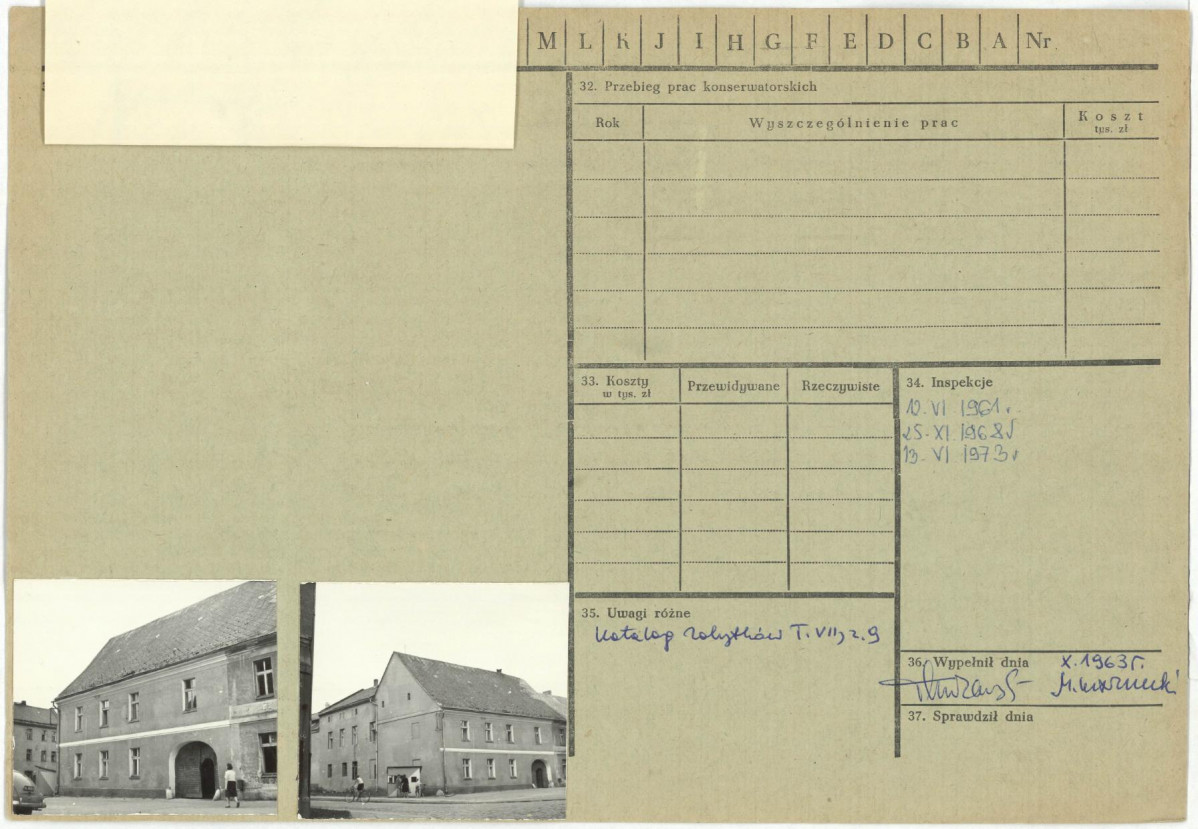 M L K J I H G F E D C B A Nr
32. Przebieg prac konserwatorskich
Rok Wyszczególnienie prac Koszt
tys. zł
33. Koszty
w tys. zł
Przewidywane Rzeczywiste
34. Inspekcje
12. VI 1961 r.
25. XI 1968 r
13. VI 1973 r
35. Uwagi różne
Katalog zabytków T. VII, z. 9
36. Wypełnił dnia X. 1963 r.
37. Sprawdził dnia